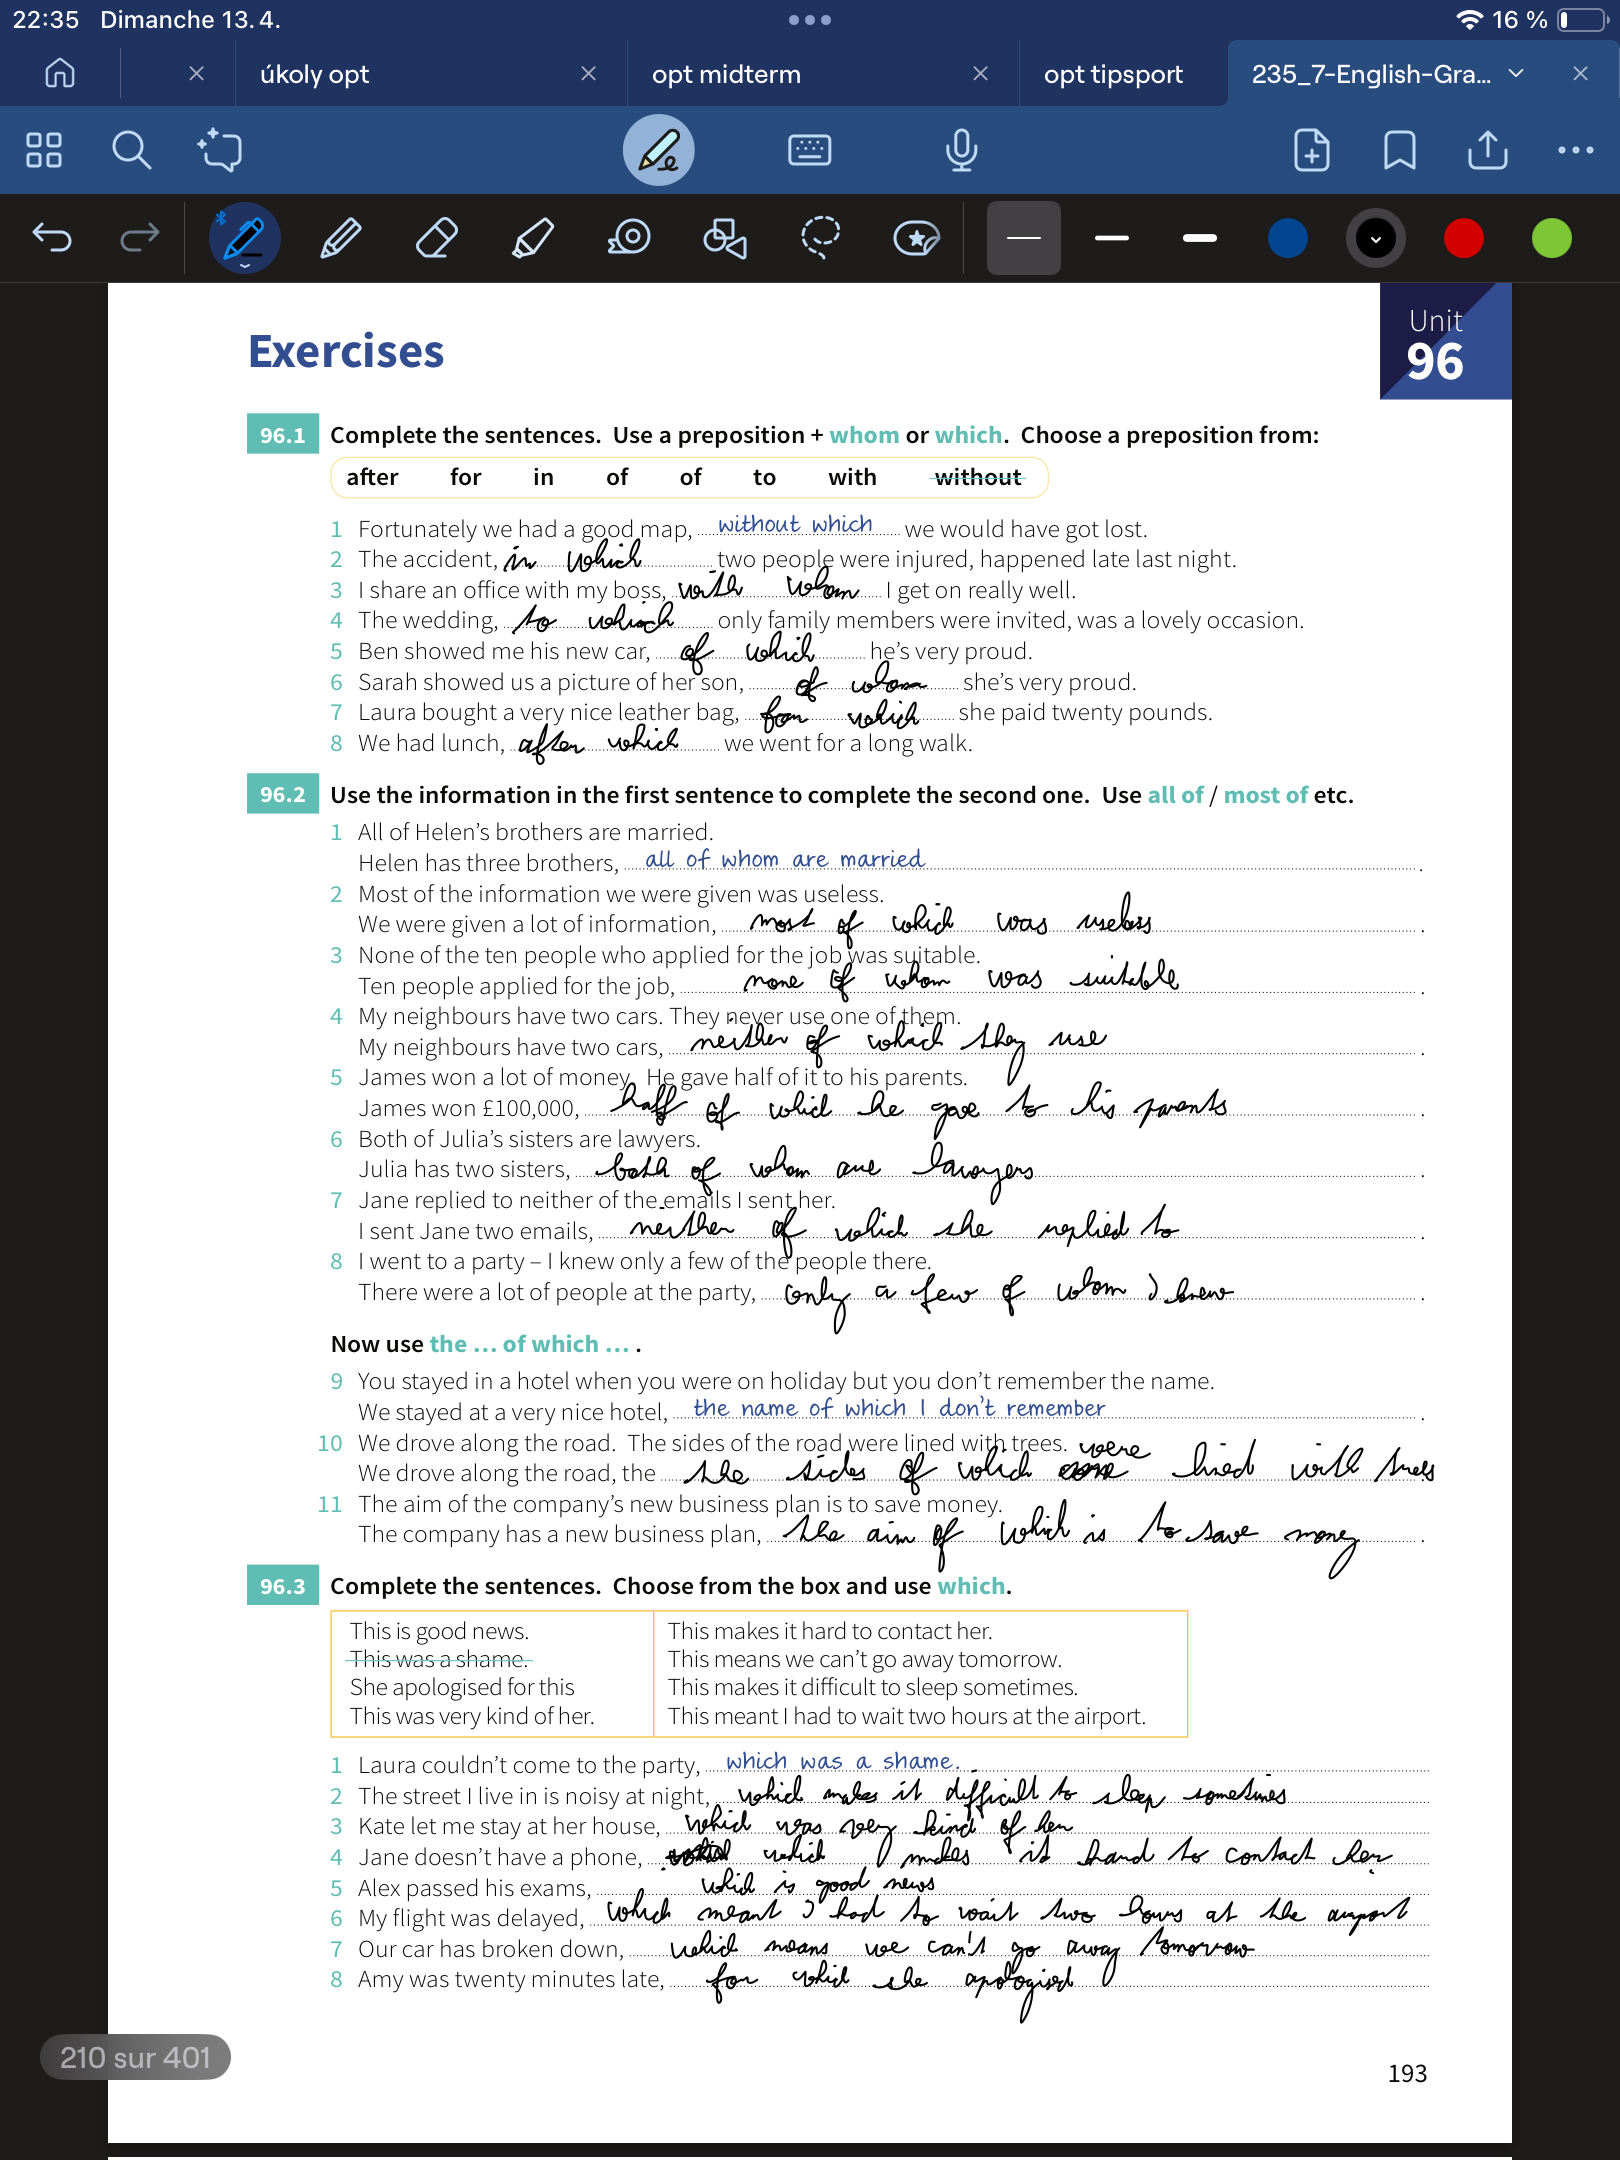 22:35 Dimanche 13. 4. 16 %
úkoly opt opt midterm opt tipsport 235_7-English-Gra...
Unit
96
Exercises
96.1 Complete the sentences. Use a preposition + whom or which. Choose a preposition from:
after for in of of to with without
1 Fortunately we had a good map, without which we would have got lost.
2 The accident, in which two people were injured, happened late last night.
3 I share an office with my boss, with whom I get on really well.
4 The wedding, to which only family members were invited, was a lovely occasion.
5 Ben showed me his new car, of which he's very proud.
6 Sarah showed us a picture of her son, of whom she's very proud.
7 Laura bought a very nice leather bag, for which she paid twenty pounds.
8 We had lunch, after which we went for a long walk.
96.2 Use the information in the first sentence to complete the second one. Use all of / most of etc.
1 All of Helen's brothers are married.
Helen has three brothers, all of whom are married .
2 Most of the information we were given was useless.
We were given a lot of information, most of which was useless .
3 None of the ten people who applied for the job was suitable.
Ten people applied for the job, none of whom was suitable .
4 My neighbours have two cars. They never use one of them.
My neighbours have two cars, neither of which they use .
5 James won a lot of money. He gave half of it to his parents.
James won £100,000, half of which he gave to his parents .
6 Both of Julia's sisters are lawyers.
Julia has two sisters, both of whom are lawyers .
7 Jane replied to neither of the emails I sent her.
I sent Jane two emails, neither of which she replied to .
8 I went to a party – I knew only a few of the people there.
There were a lot of people at the party, only a few of whom I knew .
Now use the ... of which ... .
9 You stayed in a hotel when you were on holiday but you don't remember the name.
We stayed at a very nice hotel, the name of which I don't remember .
10 We drove along the road. The sides of the road were lined with trees.
We drove along the road, the the sides of which were lined with trees .
11 The aim of the company's new business plan is to save money.
The company has a new business plan, the aim of which is to save money .
96.3 Complete the sentences. Choose from the box and use which.
This is good news. This makes it hard to contact her.
This was a shame. This means we can't go away tomorrow.
She apologised for this This makes it difficult to sleep sometimes.
This was very kind of her. This meant I had to wait two hours at the airport.
1 Laura couldn't come to the party, which was a shame.
2 The street I live in is noisy at night, which makes it difficult to sleep sometimes
3 Kate let me stay at her house, which was very kind of her
4 Jane doesn't have a phone, which makes it hard to contact her
5 Alex passed his exams, which is good news
6 My flight was delayed, which meant I had to wait two hours at the airport
7 Our car has broken down, which means we can't go away tomorrow
8 Amy was twenty minutes late, for which she apologised
210 sur 401
193